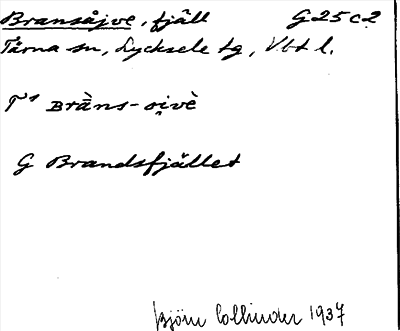 Bransåjve, fjäll G 25 c 2
Tärna sn, Lycksele lg, Vbt l.
T¹ Brā̀ns-oi̯vè
G Brandsfjället
Björn Collinder 1937